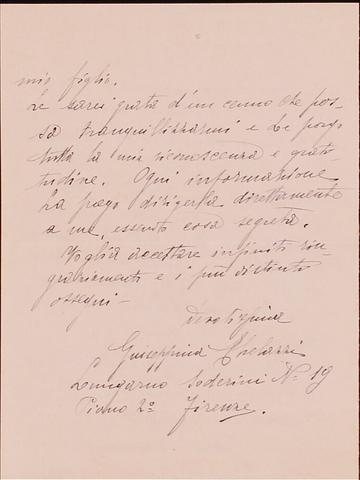 mio figlio.
Le sarei grata d'un cenno che pos-
sa tranquillizzarmi e Le porgo
tutta la mia riconoscenza e grat-
titudine. Ogni informazione
La prego dirigerla direttamente
a me, essendo cosa segreta.
Voglia accettare infiniti rin-
graziamenti e i più distinti
ossequi -
Devotissima
Giuseppina
Lungarno Soderini Nº 19
Piano 2º Firenze.